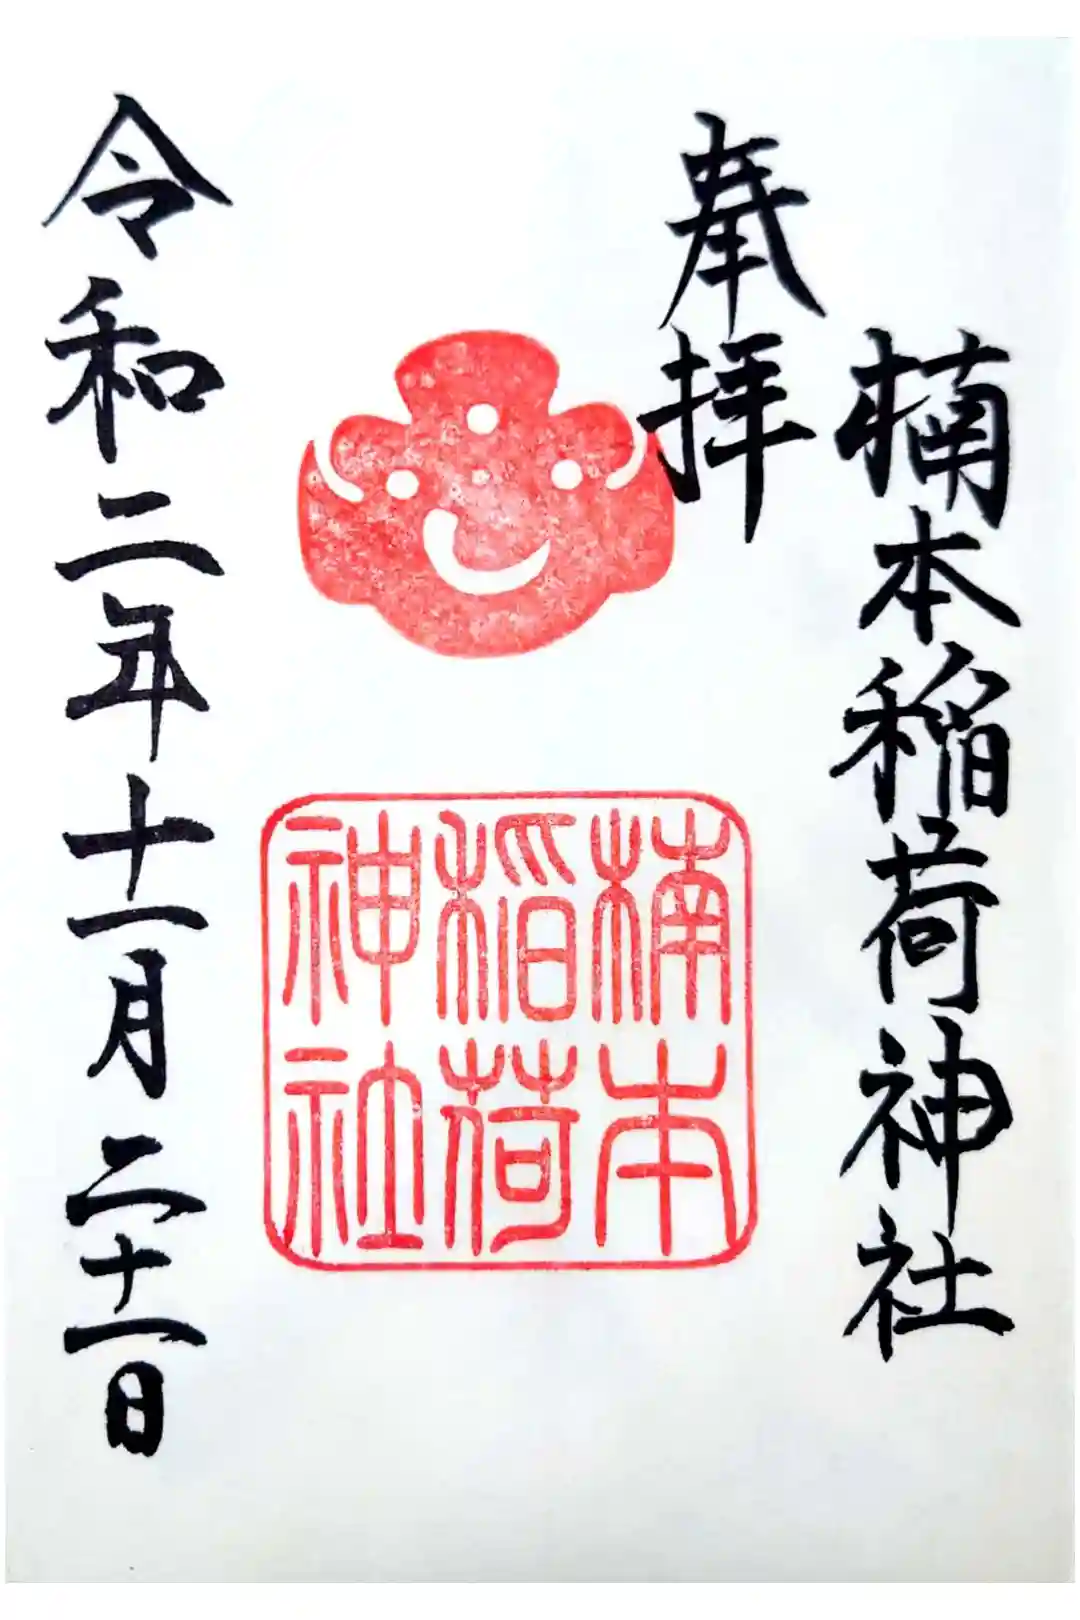 楠本稲荷神社
奉拝
楠本
稲荷
神社
令和二年十一月二十一日